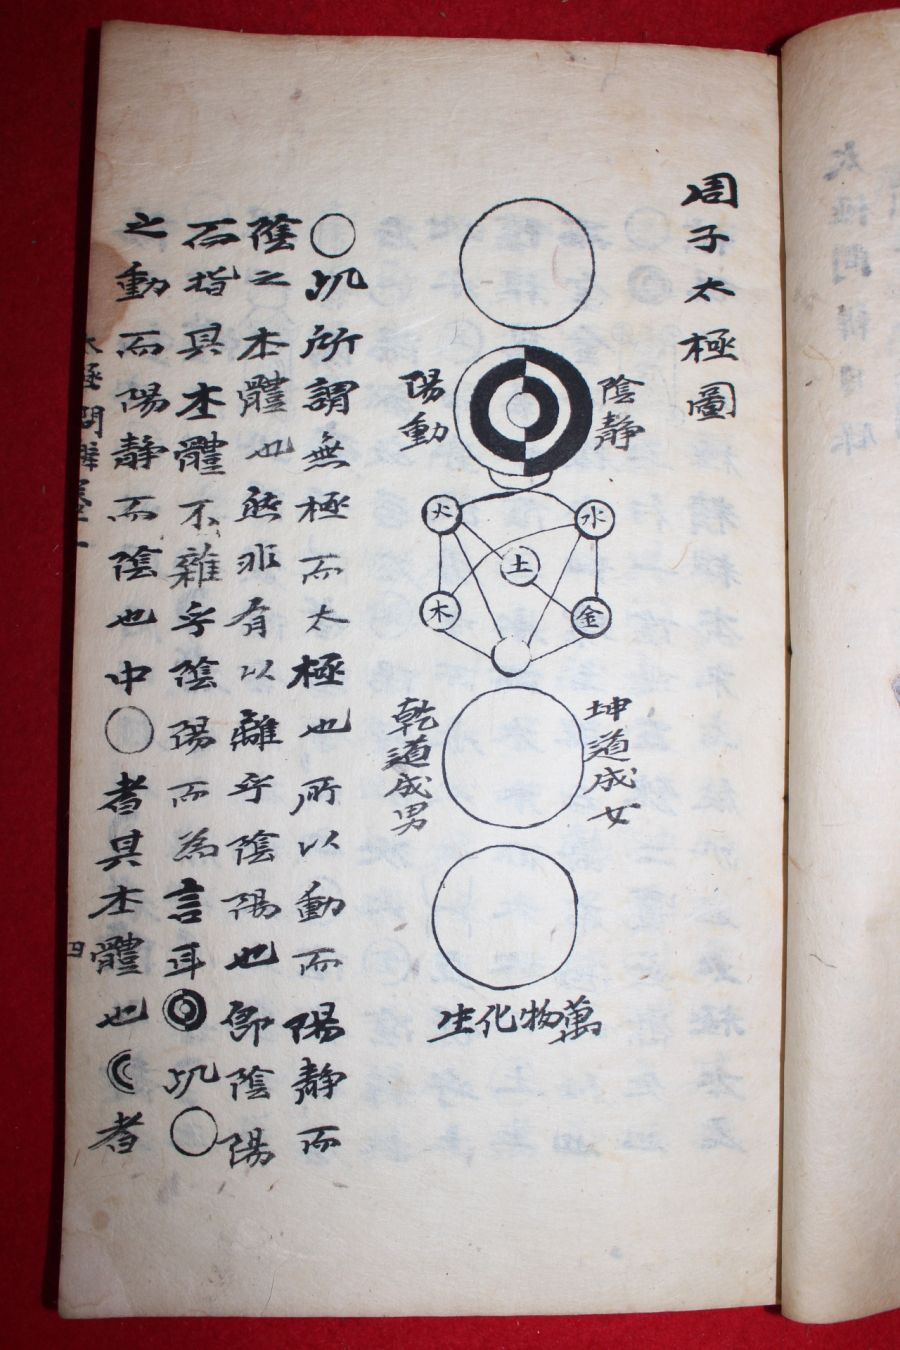 周子太極圖
陰靜
陽動
火 水
土
木 金
坤道成女
乾道成男
萬物化生
○此所謂無極而太極也所以動而陽静而
陰之本體也然非有以離乎陰陽也即陰陽
而指其本體不雜乎陰陽而為言耳◎此○
之動而陽静而陰也中○者其本體也☾者
太極問辨
四